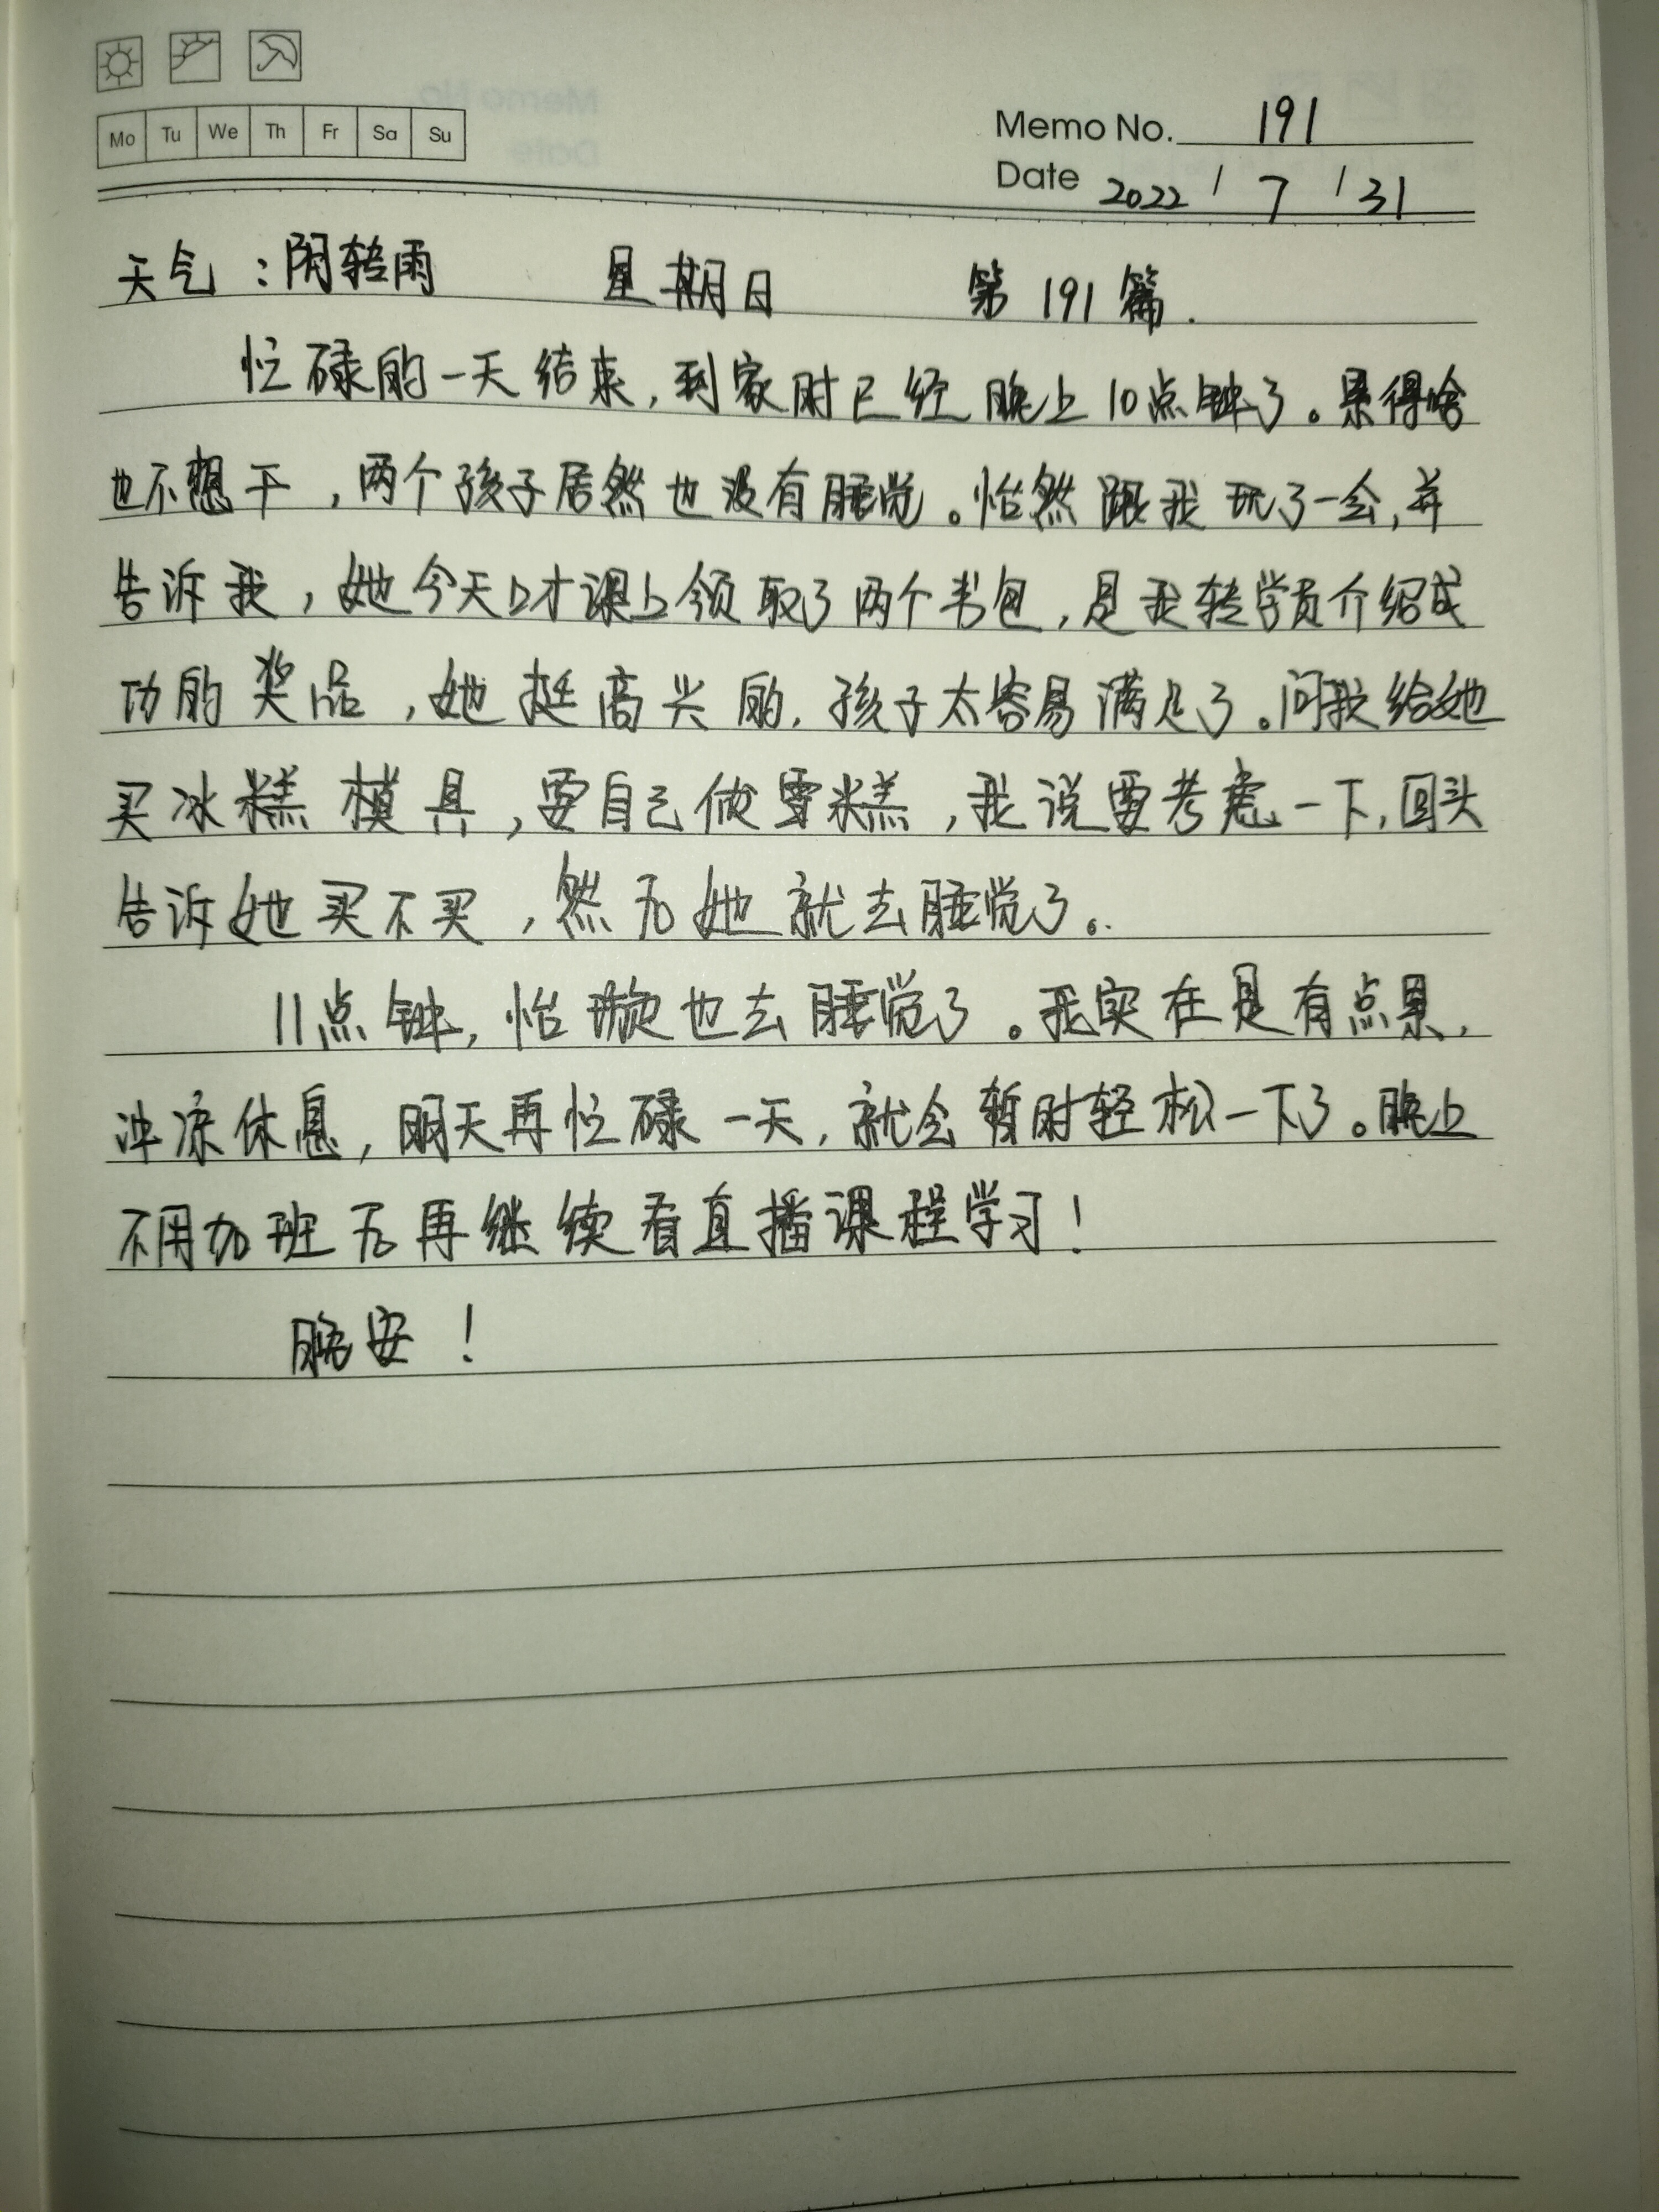 Mo Tu We Th Fr Sa Su
Memo No. 191
Date 2022 / 7 / 31
天气：阴转雨 星期日 第191篇.
忙碌的一天结束，到家时已经晚上10点钟了。累得啥
也不想干，两个孩子居然也没有睡觉。怡然跟我玩了一会，并
告诉我，她今天口才课上领取了两个书包，是我转学员介绍成
功的奖品，她挺高兴的，孩子太容易满足了。问我给她
买冰糕模具，要自己做雪糕，我说要考虑一下，回头
告诉她买不买，然后她就去睡觉了。
11点钟，怡璇也去睡觉了。我实在是有点累，
冲凉休息，明天再忙碌一天，就会暂时轻松一下了。晚上
不用加班后再继续看直播课程学习！
晚安！